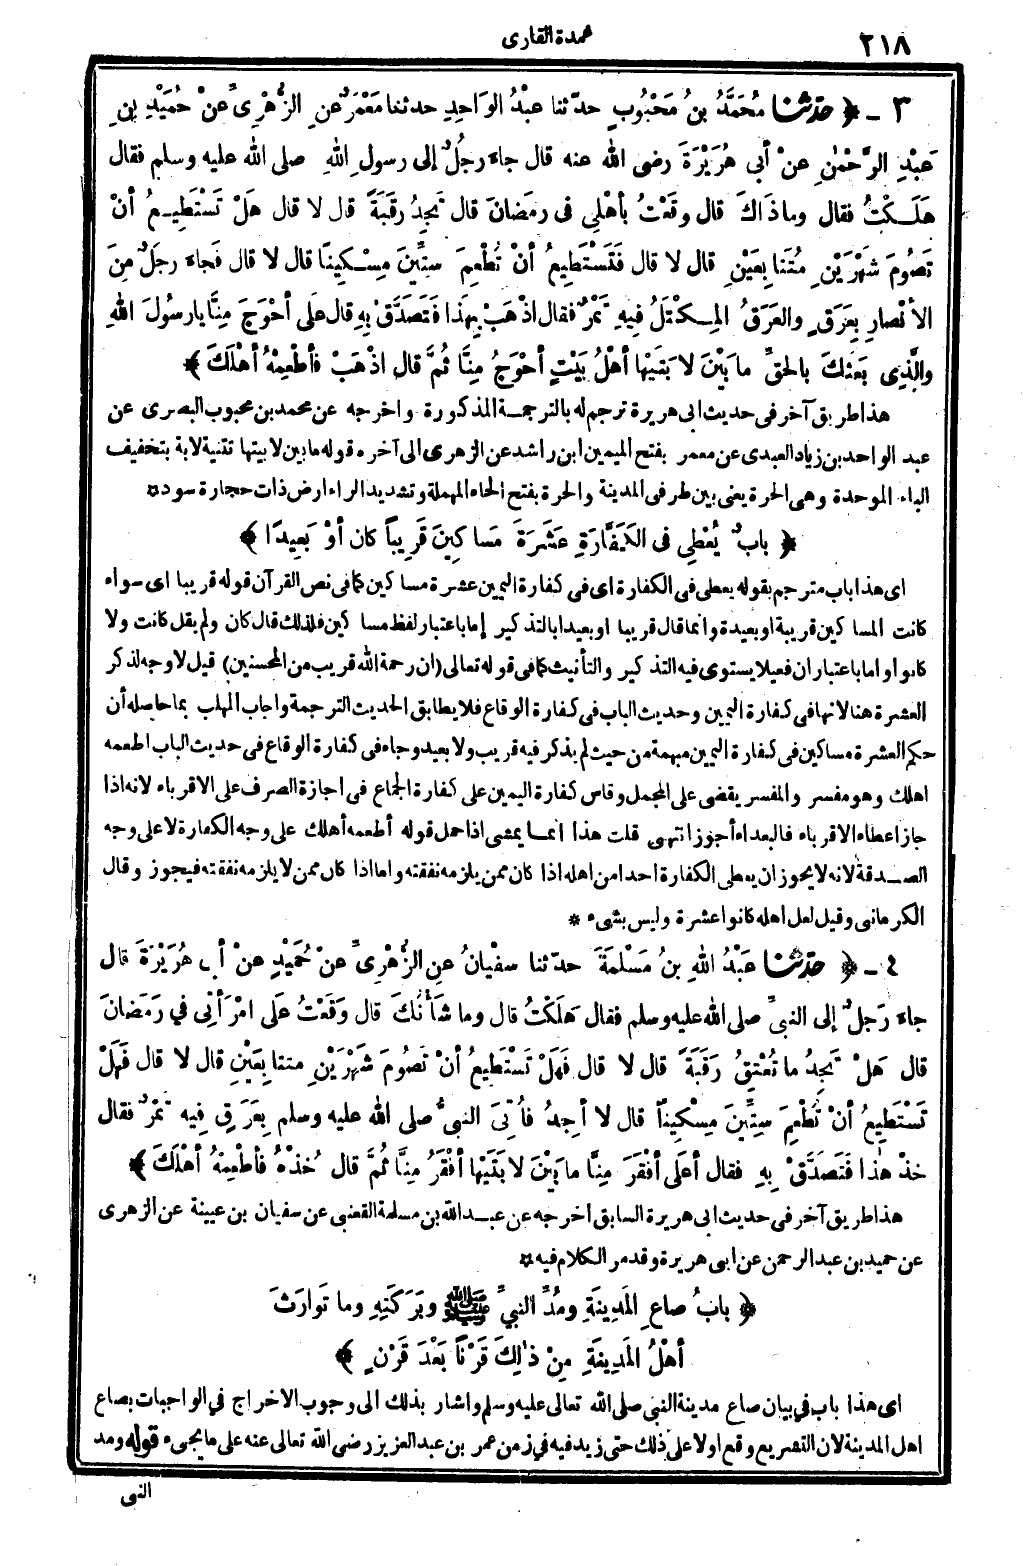 ٢١٨
عمدة القارى
٣ - ﴿ حدّثنا مُحَمَّدُ بنُ مَحْبُوبٍ حدّثنا عبْدُ الوَاحِدِ حدثنا مَعْمَرٌ عنِ الزُّهْرِيِّ عنْ حُمَيْدِ بنِ
عَبْدِ الرَّحْمٰنِ عنْ أبي هُرَيْرَةَ رضى الله عنه قال جاءَ رجُلٌ إلى رسولِ اللهِ صلى الله عليه وسلم فقال
هَلَكْتُ فقال وما ذَاكَ قال وقَعْتُ بأهْلِي فى رمَضانَ قال تَجِدُ رقَبَةً قال لا قال هَلْ تَسْتَطِيعُ أنْ
تَصُومَ شَهْرَيْنِ مُتَتابِعَيْنِ قال لا قال فَتَسْتَطِيعُ أنْ تُطْعِمَ سِتِّينَ مِسْكِينًا قال لا قال فَجاءَ رجلٌ مِنَ
الأنْصارِ بِعَرَقٍ والعَرَقُ المِكْتَلُ فِيهِ تَمْرٌ فقال اذْهَبْ بِهَذا فَتَصَدَّقْ بِهِ قال على أحْوَجَ مِنَّا يارسُولَ اللهِ
والَّذِى بَعَثَكَ بالحقِّ ما بَيْنَ لابَتَيْها أهْلُ بَيْتٍ أحْوَجُ مِنَّا ثُمَّ قال اذْهَبْ فأطْعِمْهُ أهْلَكَ ﴾
هذا طريق آخر فى حديث ابى هريرة ترجم له بالترجمة المذكورة واخرجه عن محمد بن محبوب البصرى عن
عبد الواحد بن زياد العبدى عن معمر بفتح الميمين ابن راشد عن الزهرى الى آخره قوله ما بين لابيتها تثنية لابة بتخفيف
الباء الموحدة وهى الحرة يعنى بين طرفى المدينة والحرة بفتح الحاء المهملة وتشديد الراء ارض ذات حجارة سود ¤
﴿ بابٌ يُعْطِي فى الكَفَّارَةِ عَشَرَةَ مَساكِينَ قَرِيباً كان أوْ بَعِيدًا ﴾
اى هذا باب مترجم بقوله يعطى فى الكفارة اى فى كفارة اليمين عشرة مساكين كما فى نص القرآن قوله قريبا اى سواء
كانت المساكين قريبة او بعيدة وانما قال قريبا او بعيدا بالتذكير إما باعتبار لفظ مساكين فلذلك قال كان ولم يقل كانت ولا
كانوا واما باعتبار ان فعيلا يستوى فيه التذكير والتأنيث كما فى قوله تعالى (ان رحمة الله قريب من المحسنين) قيل لا وجه لذكر
العشرة هنا لانها فى كفارة اليمين وحديث الباب فى كفارة الوقاع فلا يطابق الحديث الترجمة واجاب المهلب بما حاصله أن
حكم العشرة مساكين فى كفارة اليمين مبهمة من حيث لم يذكر فيه قريب ولا بعيد وجاء فى كفارة الوقاع فى حديث الباب اطعمه
اهلك وهو مفسر والمفسر يقضى على المجمل وقاس كفارة اليمين على كفارة الجماع فى اجازة الصرف على الاقرباء لانه اذا
جاز اعطاء الاقرباء فالبعداء أجوز انتهى قلت هذا انما يمشى اذا حمل قوله أطعمه أهلك على وجه الكفارة لا على وجه
الصدقة لانه لا يجوز ان يعطى الكفارة احدا من اهله اذا كان ممن يلزمه نفقته واما اذا كان ممن لا يلزمه نفقته فيجوز وقال
الكرمانى وقيل لعل اهله كانوا عشرة وليس بشىء *
٤ - ﴿ حدّثنا عَبْدُ اللهِ بنُ مَسْلَمَةَ حدّثنا سفْيانُ عنِ الزُّهْرِىِّ عنْ حُمَيْدٍ عنْ أبى هُرَيْرَةَ قال
جاءَ رَجلٌ إلى النبىِّ صلى الله عليه وسلم فقال هَلَكْتُ قال وما شَأْنُكَ قال وَقَعْتُ عَلَى امْرَأتي في رَمَضانَ
قال هَلْ تَجِدُ ما تُعْتِقُ رَقَبَةً قال لا قال فَهَلْ تَسْتَطِيعُ أنْ تَصُومَ شَهْرَيْنِ متتابِعَيْنِ قال لا قال فَهَلْ
تَسْتَطِيعُ أنْ تُطْعِمَ سِتِّينَ مِسْكِيناً قال لا أجِدُ فأُتِىَ النبىُّ صلى الله عليه وسلم بِعَرَقٍ فِيه تَمْرٌ فقال
خذْ هٰذا فَتَصَدَّقْ بِهِ فقال أعَلَى أفْقَرَ مِنَّا ما بَيْنَ لابَتَيْها أفْقَرُ مِنَّا ثُمَّ قال خُذْهُ فأطْعِمْهُ أهْلَكَ ﴾
هذا طريق آخر فى حديث ابى هريرة السابق اخرجه عن عبد الله بن مسلمة القعنبى عن سفيان بن عيينة عن الزهرى
عن حميد بن عبد الرحمن عن ابى هريرة وقد مر الكلام فيه ¤
﴿ بابُ صاعِ المَدِينَةِ ومُدِّ النبيِّ ﷺ وبَرَكَتِهِ وما تَوارَثَ
أهْلُ المَدِينَةِ مِنْ ذٰلِكَ قَرْناً بَعْدَ قَرْنٍ ﴾
اى هذا باب في بيان صاع مدينة النبى صلى الله تعالى عليه وسلم واشار بذلك الى وجوب الاخراج في الواجبات بصاع
اهل المدينة لان التشريع وقع اولا على ذلك حتى زيد فيه في زمن عمر بن عبد العزيز رضى الله تعالى عنه على ما يجىء قوله ومد
النبى